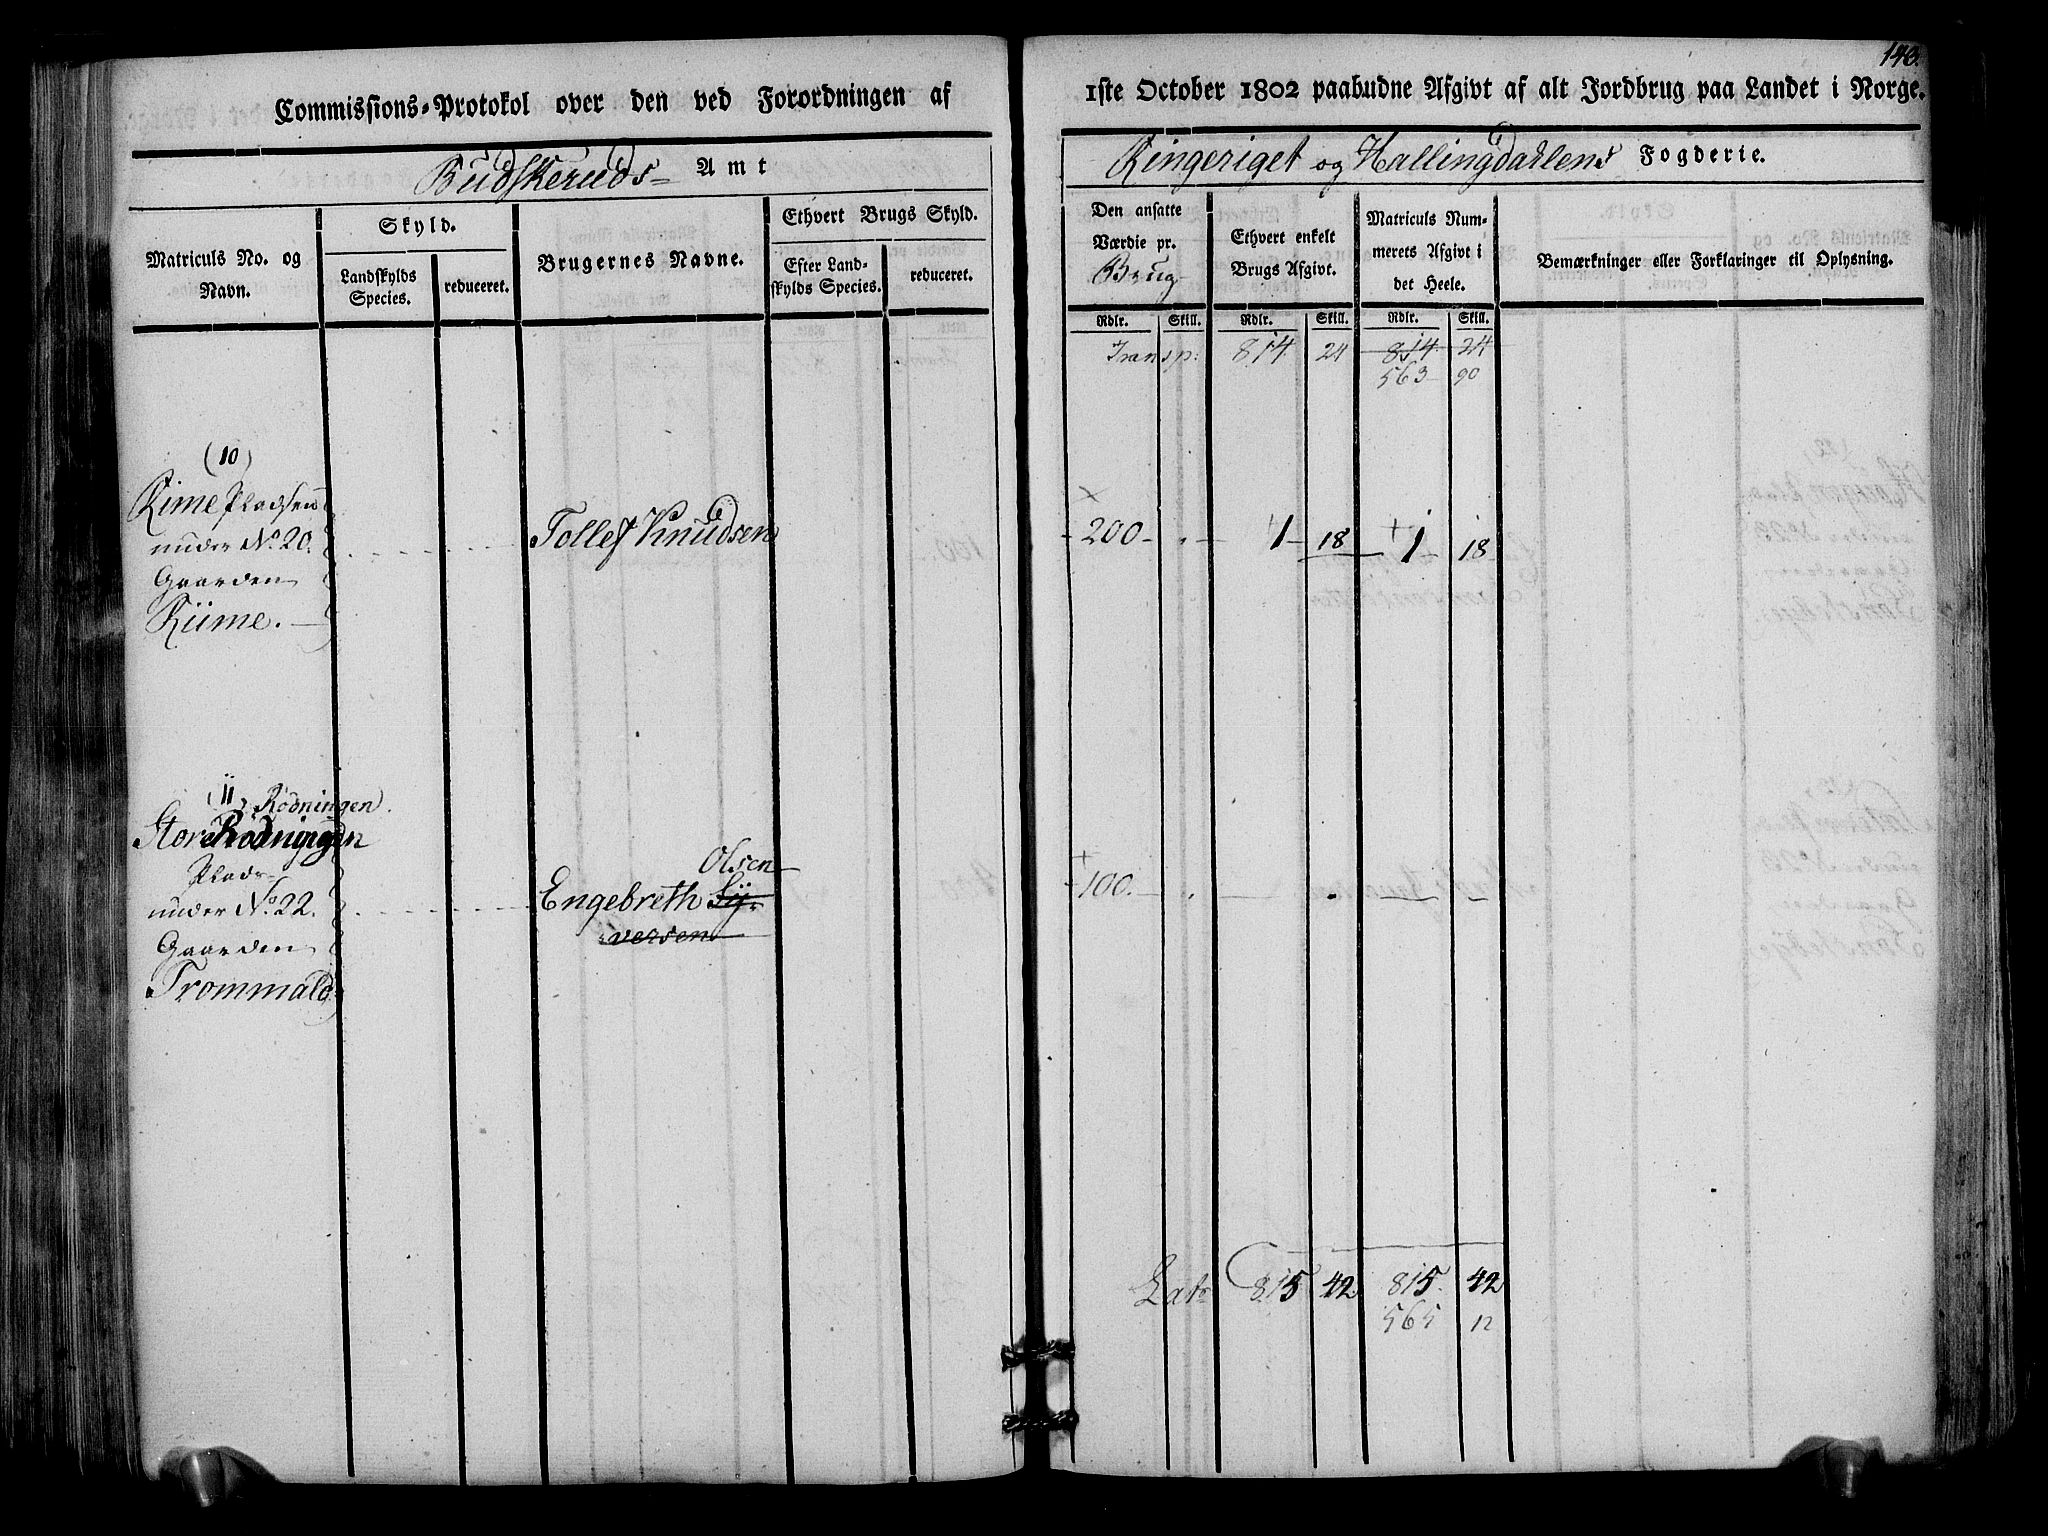 Commissions=Protokol over den ved Forordningen af
Budskeruds= Amt
Matriculs No. og Navn.
Skyld.
Landskylds Species.
reduceret.
Brugernes Navne.
Ethvert Brugs Skyld.
Efter Land-
skylds Species.
reduceret.
(10)
Rime Pladsen
under No. 20.
Gaarden
Riime.
Tollef Knudsen
(11) Rödningen
Store Rödningen
Plads
under No. 22.
Gaarden
Trommald
Olsen
Engebreth Sy-
versen
143.
1ste October 1802 paabudne Afgivt af alt Jordbrug paa Landet i Norge.
Ringeriget og Hallingdahlens Fogderie.
Den ansatte
Værdie pr.
Brug
Ethvert enkelt
Brugs Afgivt.
Matriculs Num-
merets Afgivt i
det Heele.
Bemærkninger eller Forklaringer til Oplysning.
Rdlr. Skill. Rdlr. Skill. Rdlr. Skill.
Transp: 814 24 814 24
563 90
200 1 18 1 18
100.
Lat 815 42 815 42
565 12